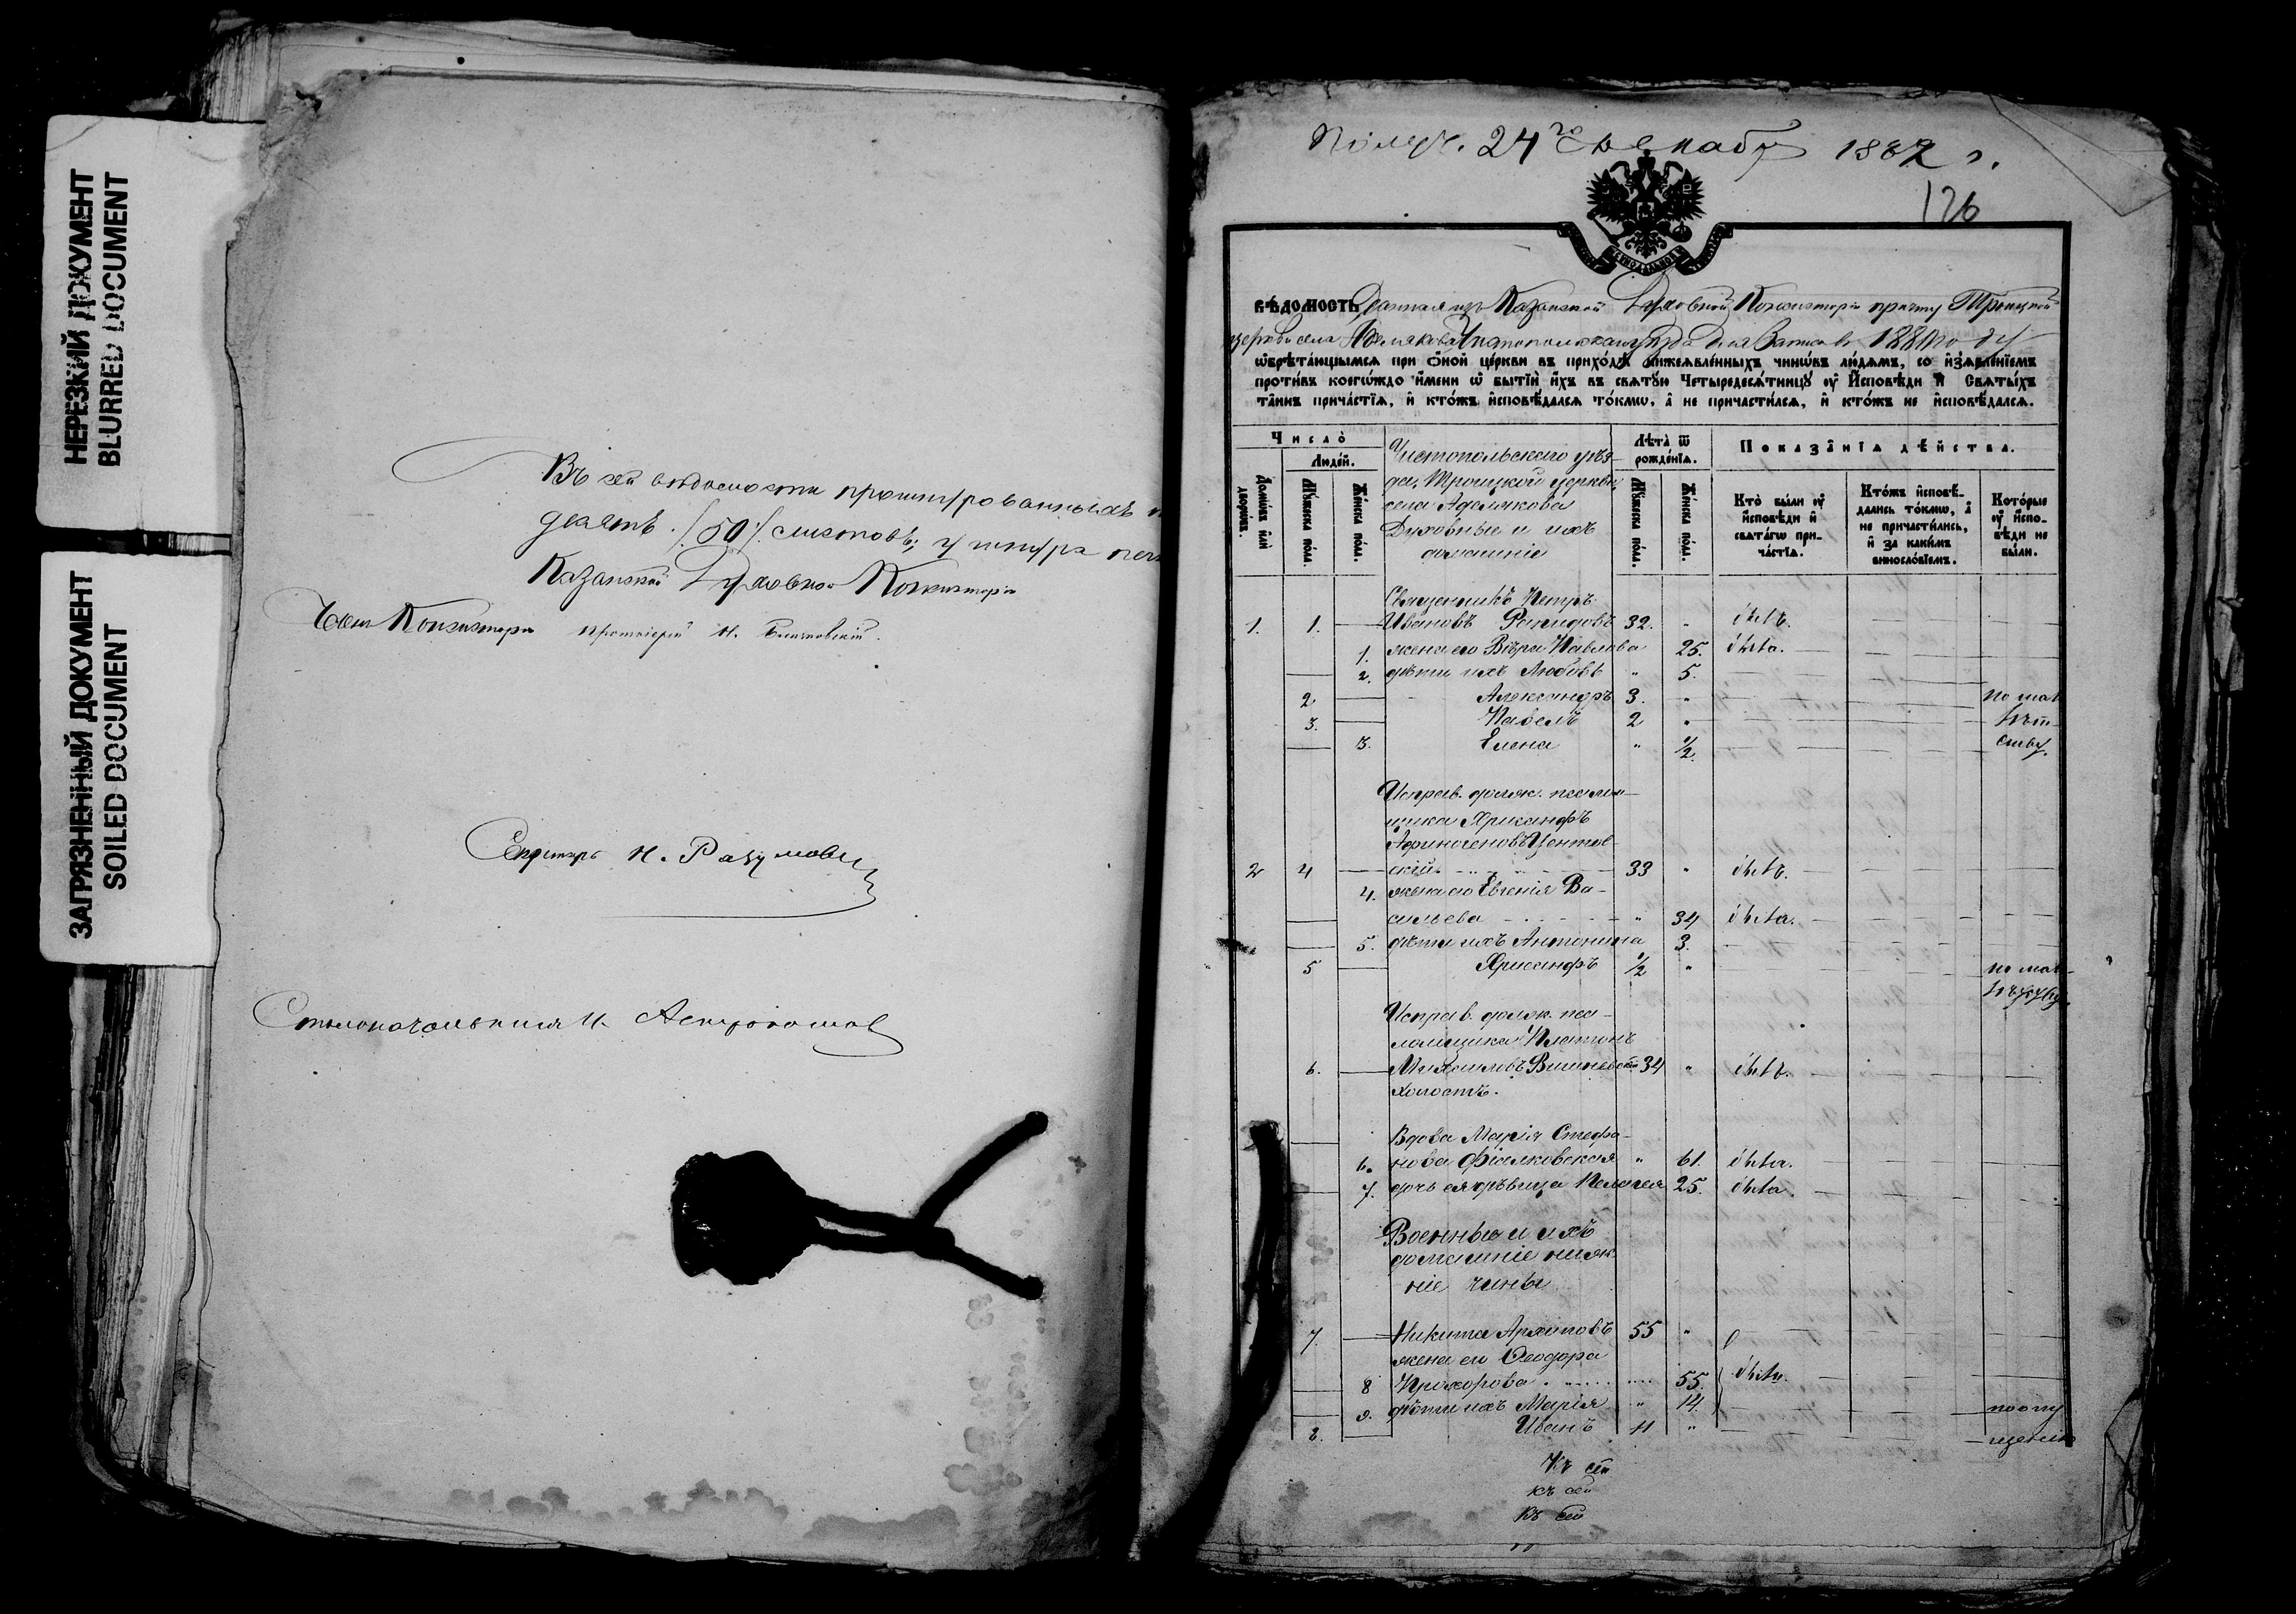 НЕРЕЗКИЙ ДОКУМЕНТ
BLURRED DOCUMENT
ЗАГРЯЗНЕННЫЙ ДОКУМЕНТ
SOILED DOCUMENT
Въ сей вѣдомости прошнурованныхъ
десятъ /50/ листовъ; у шнура печ
Казанской Духовной Консисторіи
Членъ Консисторіи Протоіерей И.
Секретарь Н. Разумовъ
Столоначальникъ И.
Получ. 24го Декабр 1882 г.
126
ВѢДОМОСТЬ Данная изъ Казанской Духовной Консисторіи причту Троицкой
церкви села Адельякова Чистопольскаго уѣзда для Записи въ году
ѡбрѣтающымся при оной церкви въ приходѣ нижеявленныхъ чинѡвъ людямъ, со изъявленіемъ
противъ коегѡждо имени ѡ бытіи ихъ въ святую Четыредесятницу оу Исповѣди и Святыхъ
таинъ причастія, и ктожъ исповѣдался токмѡ, а не причастился, и ктожъ не исповѣдался.
Число
Людей.
Домѡвъ или дворѡвъ.
Мужеска полл.
Женска полл.
Чистопольскаго уѣз-
да, Троицкой церкви,
села Адельякова
Духовные и ихъ
домашніе
Лѣта ѿ рожденія.
Мужеска полл.
Женска полл.
Показанія дѣйства.
Кто были оу исповѣди и святагѡ причастія.
Ктожъ исповѣдались токмѡ, а не причастились, и за какимъ винословіемъ.
Которые оу исповѣди не были.
Священникъ Петръ
1. 1. Ивановъ 32. " былъ.
1. жена его Вѣра Павлова 25. была.
2. дѣти ихъ Любовь " 5.
2. Александръ 3. " по мал
3. Павелъ 2 " лѣт
3. Елена " 1/2. ству.
Исправ. долж. псалом-
щика Хрисанфъ
2 4 скій 33 " былъ.
4. жена его Евгенія Ва-
сильева " 34 была.
5. дѣти ихъ Антонина 3.
5 Хрисанфъ 1/2 " по мал-
Исправ. долж. пса-
ломщика Платонъ
6. 34 " былъ.
холостъ.
Вдова Марія Стефа-
6. нова Фіалковская " 61. была.
7. дочь ея дѣвица Пелагея 25. была.
Военные и ихъ
домашніе ниж
ніе чины
7. Никита Архиповъ 55 "
жена его Ѳеодора
8 Прохорова 55. были.
9. дѣти ихъ Марія " 14. по опу
8. Иванъ 11 " щенію
Къ сей
къ сей
къ сей